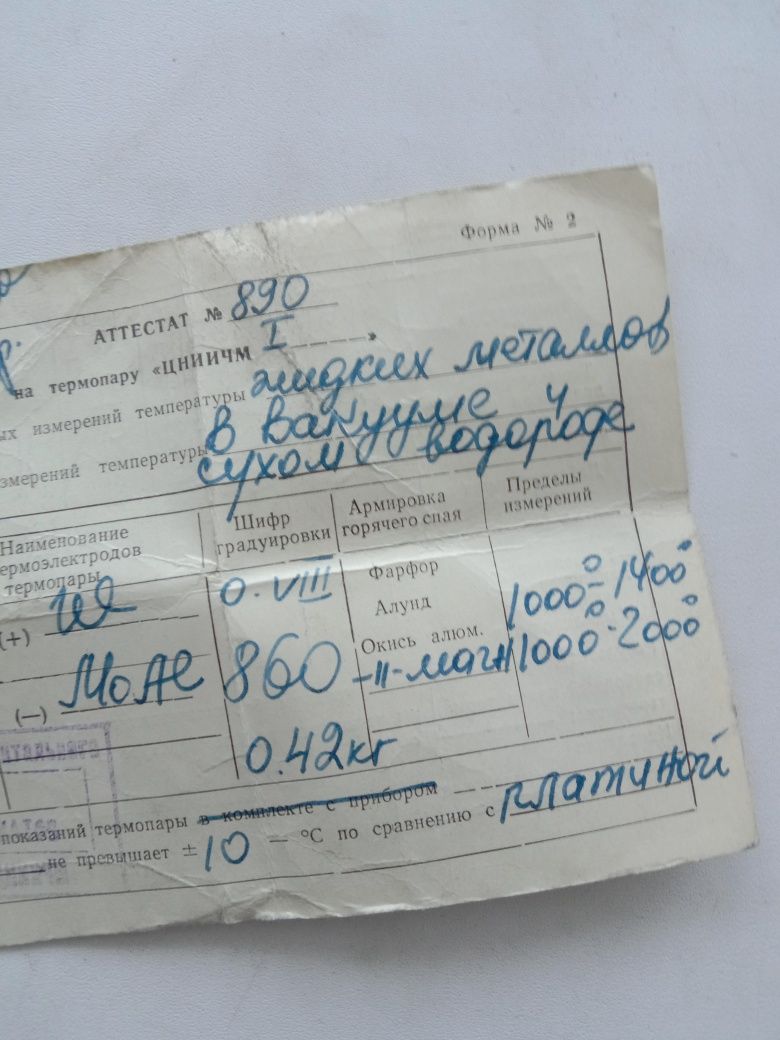 Форма № 2
АТТЕСТАТ № 890
на термопару «ЦНИИЧМ I»
ых измерений температуры жидких металлов
в вакууме и
змерений температуры сухом водороде
Наименование
ермоэлектродов
термопары
Шифр
градуировки
Армировка
горячего спая
Пределы
измерений
(+)
О.VIII
Фарфор
Алунд
Окись алюм.
1000°-1400°
(—) МоАl
860
-"- магн
1000°-2000°
0.42кг
показаний термопары в комплекте с прибором
не превышает ± 10 — °С по сравнению с платиной